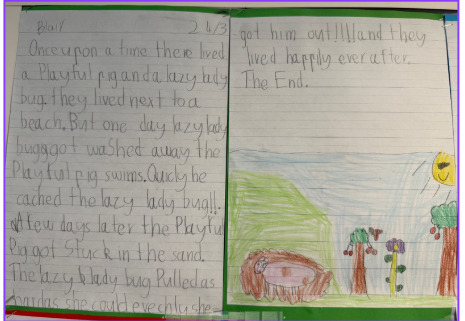 Blair 24/3
Once upon a time there lived
a Playful pig and a lazy lady
bug. they lived next to a
beach. But one day lazy lady
bugg got washed away the
Playful pig swims. Quicly he
cached the lazy lady bug!!.
A few days later the Playful
Pig got Stuck in the sand.
The lazy lady bug Pulled as
hard as she could evechly she
got him out!!!! and they
lived happily ever after.
The End.